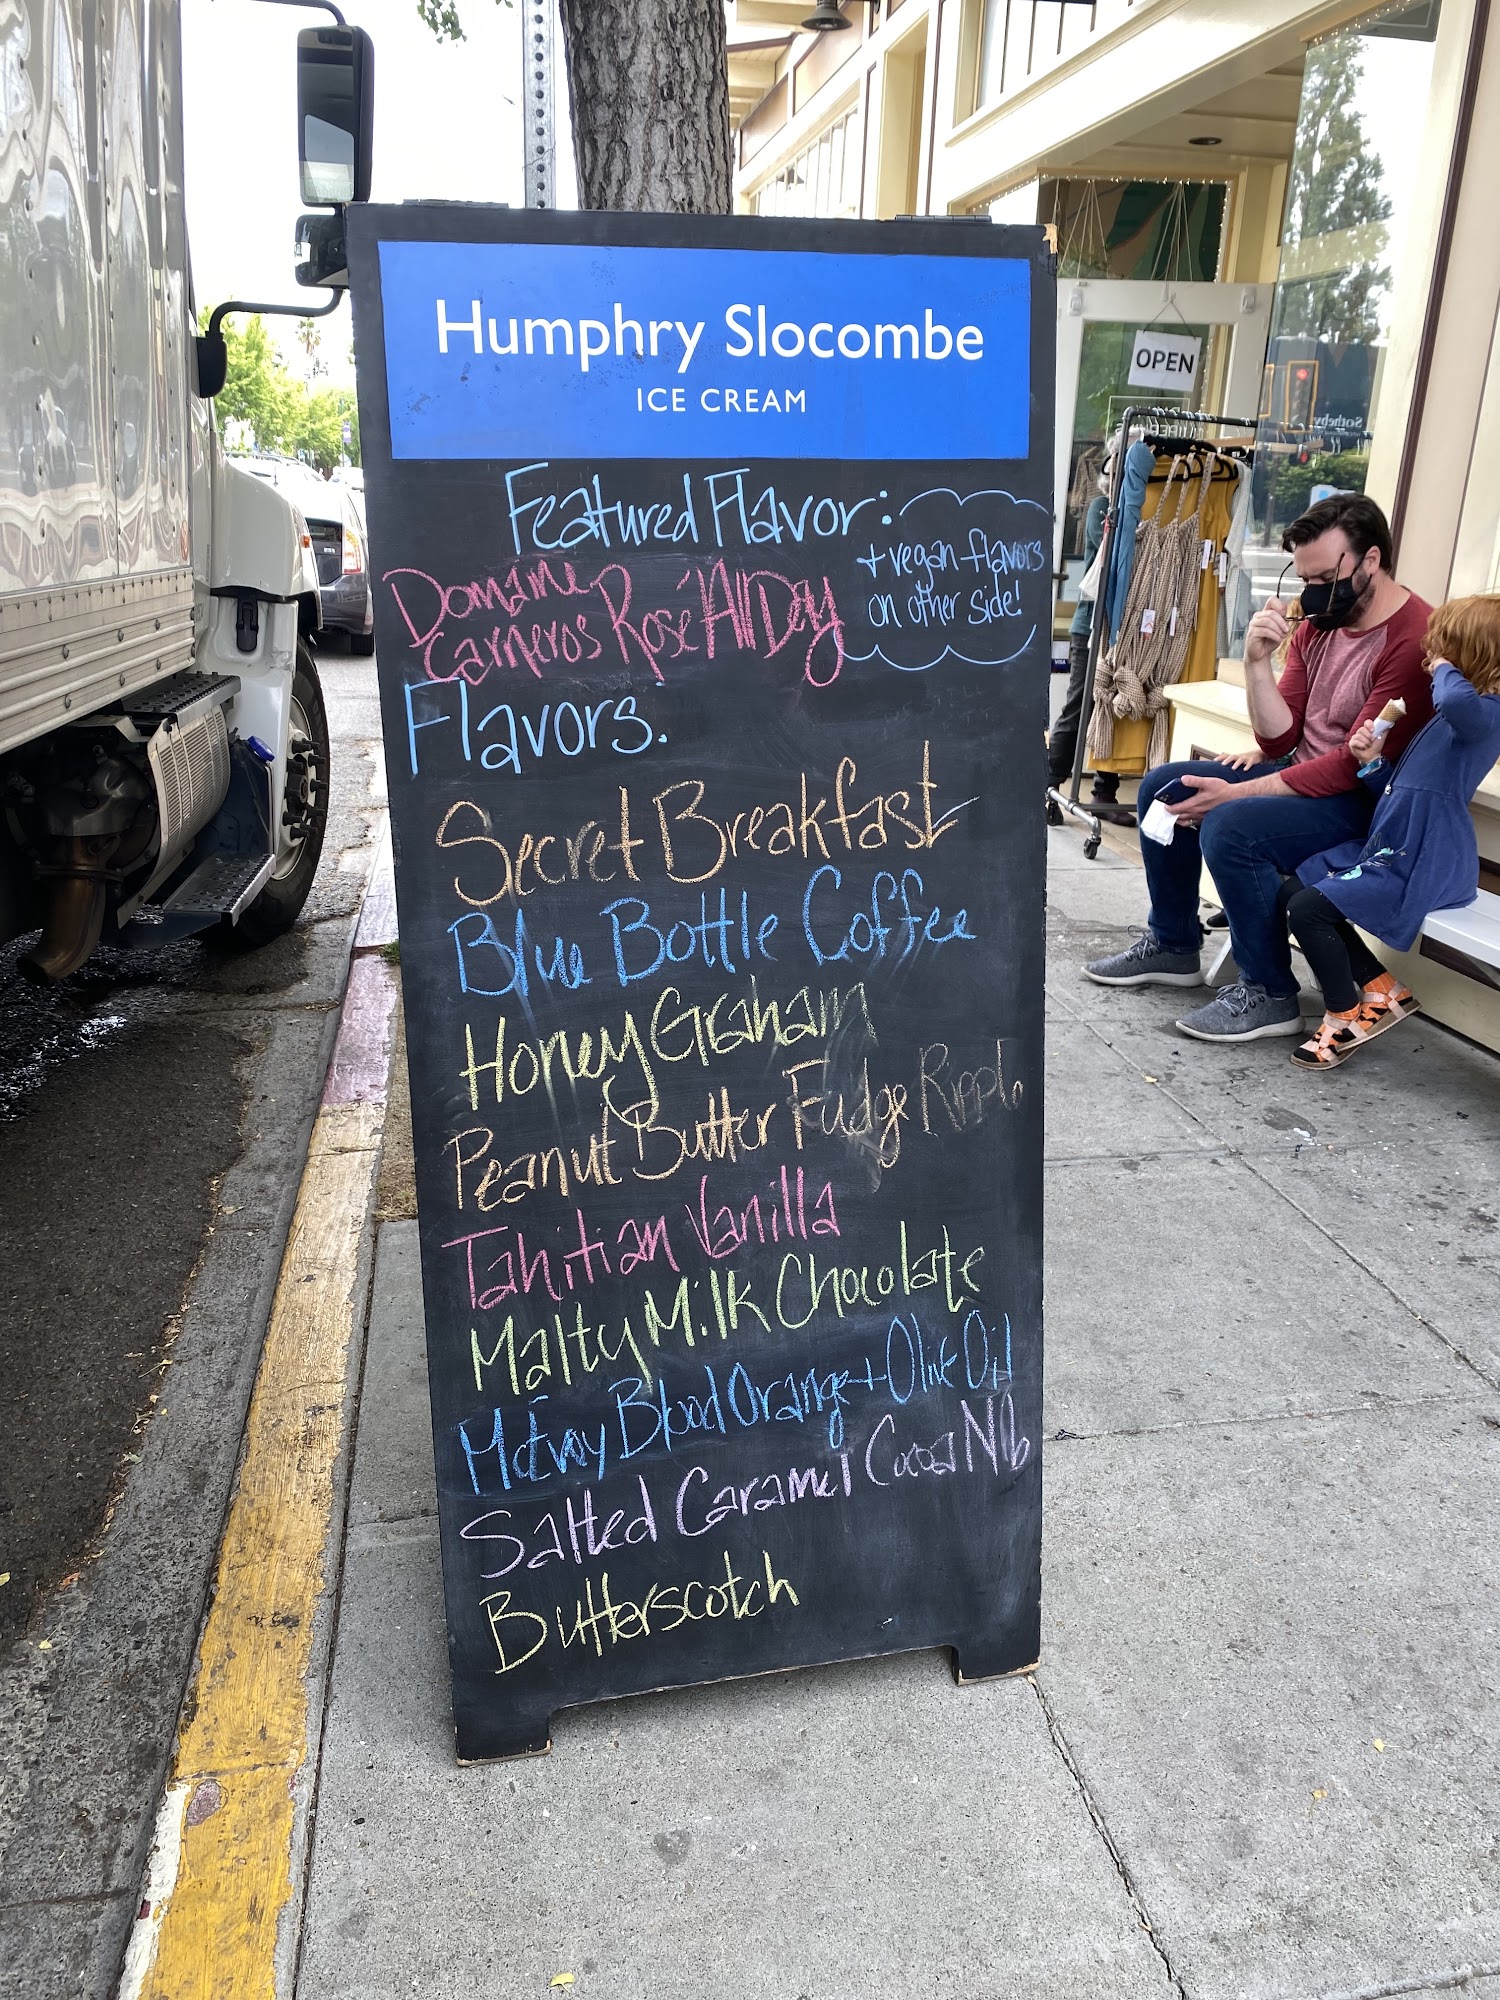 Humphry Slocombe
ICE CREAM
Featured Flavor:
+ vegan flavors
on other side!
Domaine
Carneros Rosé All Day
Flavors:
Secret Breakfast
Blue Bottle Coffee
Honey Graham
Peanut Butter Fudge Ripple
Tahitian Vanilla
Malty Milk Chocolate
McEvoy Blood Orange + Olive Oil
Salted Caramel Cocoa Nib
Butterscotch
OPEN
Sotheby